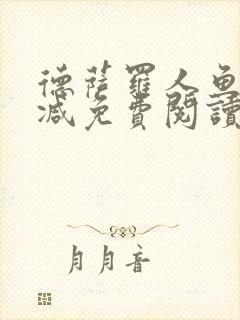 德薩羅人魚
減免費閱讀
月月音